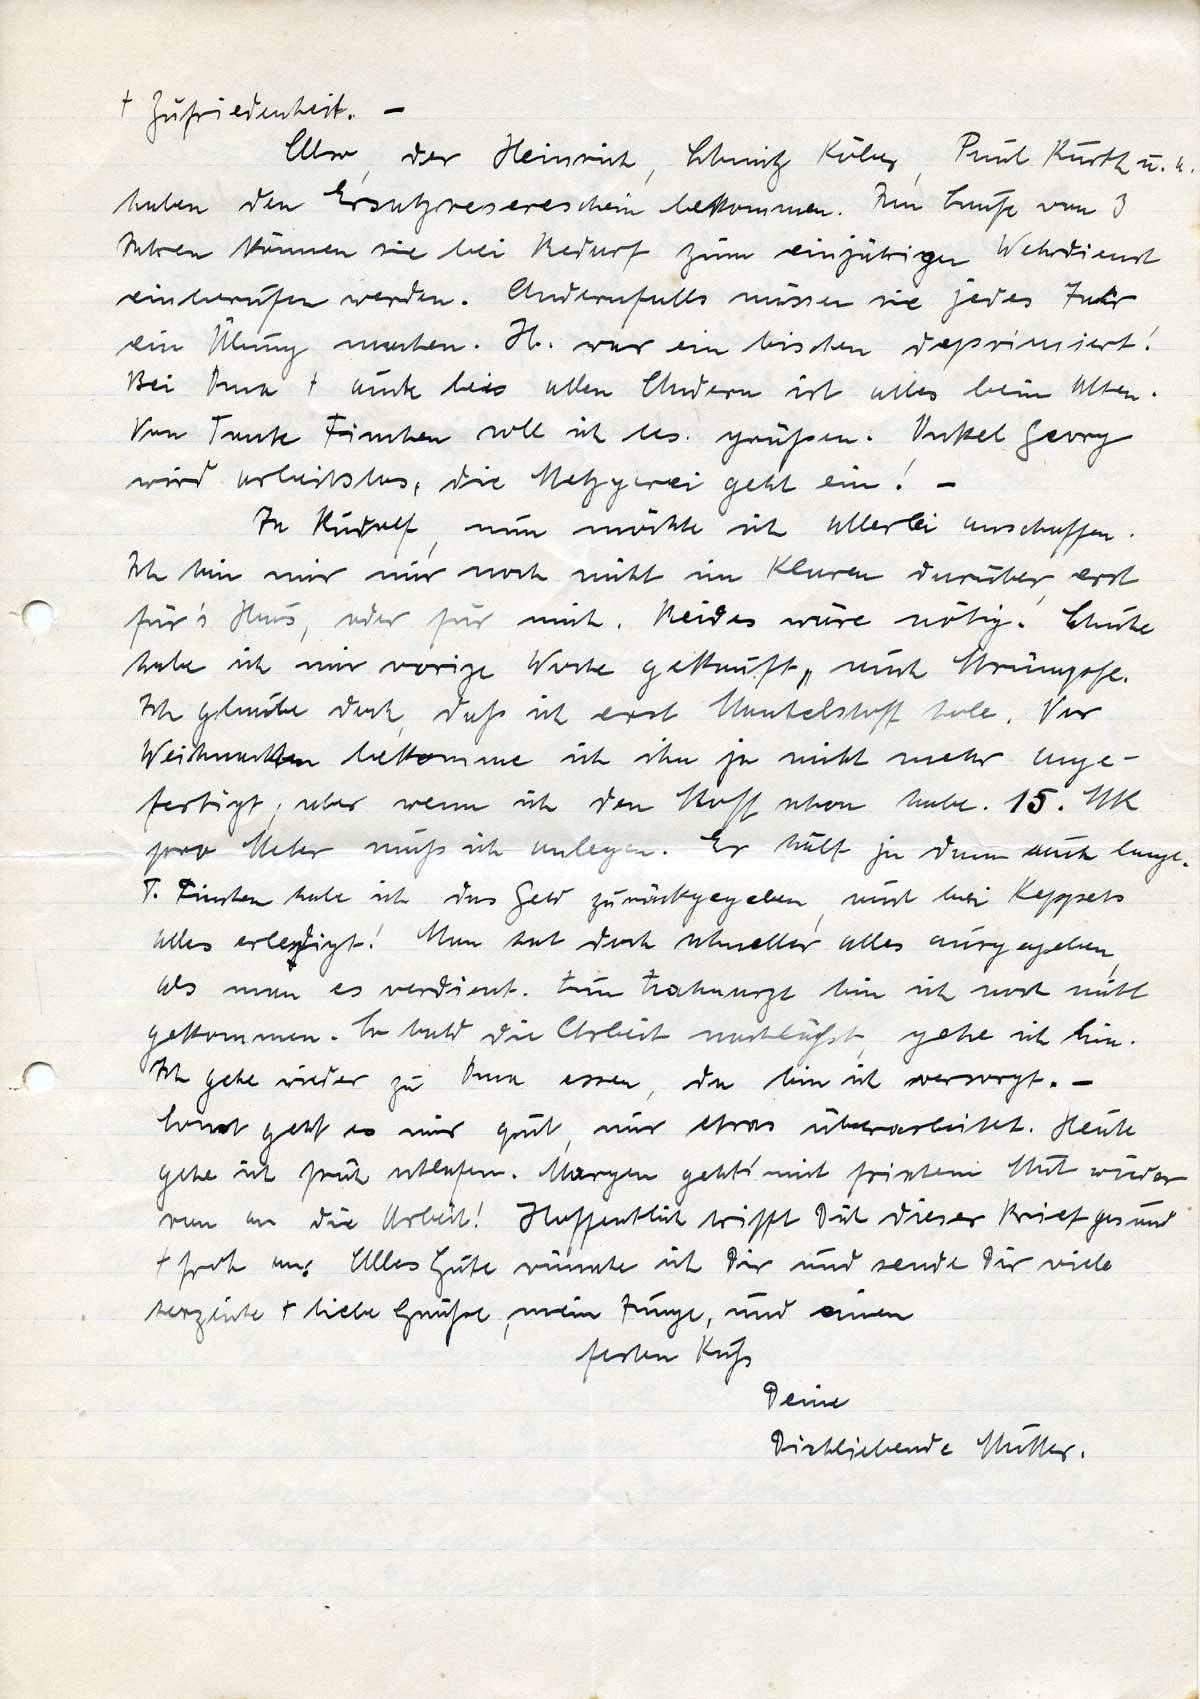 + Zufriedenheit. –
Also, der Heinrich, Schmitz Paul Kurth u. a.
haben den Ersatzreserveschein bekommen. Im Laufe von 3
Jahren können sie bei Bedarf zum einjährigen Wehrdienst
einberufen werden. Andernfalls müssen sie jedes Jahr
ein Übung machen. H. war ein bischen deprimiert!
Bei Oma + auch bei allen Andern ist alles beim Alten.
Von Tante Finchen soll ich bes. grüßen. Onkel Georg
wird arbeitslos, die Metzgerei geht ein! –
Ja Rudolf, nun möchte ich allerlei anschaffen.
Ich bin mir nur noch nicht im Klaren darüber, erst
für's Haus, oder für mich. Beides wäre nötig! Schuhe
habe ich mir vorige Woche gekauft, auch Strümpfe.
Ich glaube doch, daß ich erst Mantelstoff hole. Vor
Weihnachten bekomme ich ihn ja nicht mehr ange-
fertigt, aber wenn ich den Stoff schon habe. 15. MK
pro Meter muß ich anlegen. Er hält ja dann auch lange.
T. Finchen habe ich das Geld zurückgegeben, und bei
alles erledigt! Man hat doch schneller alles ausgegeben,
als man es verdient. Zum Zahnarzt bin ich noch nicht
gekommen. So bald die Arbeit nachläßt, gehe ich hin.
Ich gehe wieder zu Oma essen, da bin ich versorgt. –
Sonst geht es mir gut, nur etwas überarbeitet. Heute
gehe ich früh schlafen. Morgen geht's mit frischem Mut wieder
ran an die Arbeit! Hoffentlich trifft Dich dieser Brief gesund
+ froh an. Alles Gute wünsche ich Dir und sende Dir viele
herzliche + liebe Grüße, mein Junge, und einen
festen Kuß
Deine
Dichliebende Mutter.